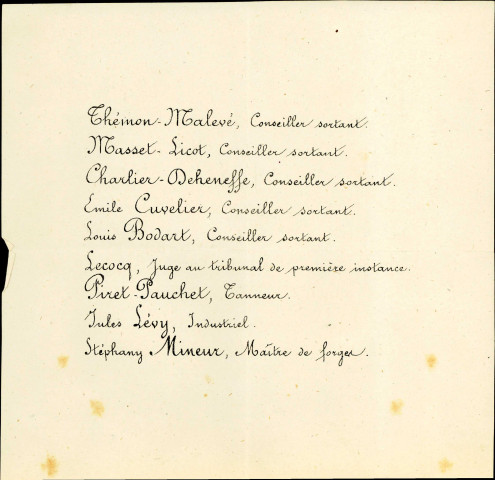 Thémon-Malevé, Conseiller sortant.
Masset-Licot, Conseiller sortant.
Charlier-Deheneffe, Conseiller sortant.
Emile Cuvelier, Conseiller sortant.
Louis Bodart, Conseiller sortant.
Lecocq, Juge au tribunal de première instance.
Piret-Pauchet, Tanneur.
Jules Lévy, Industriel.
Stéphany Mineur, Maître de forges.